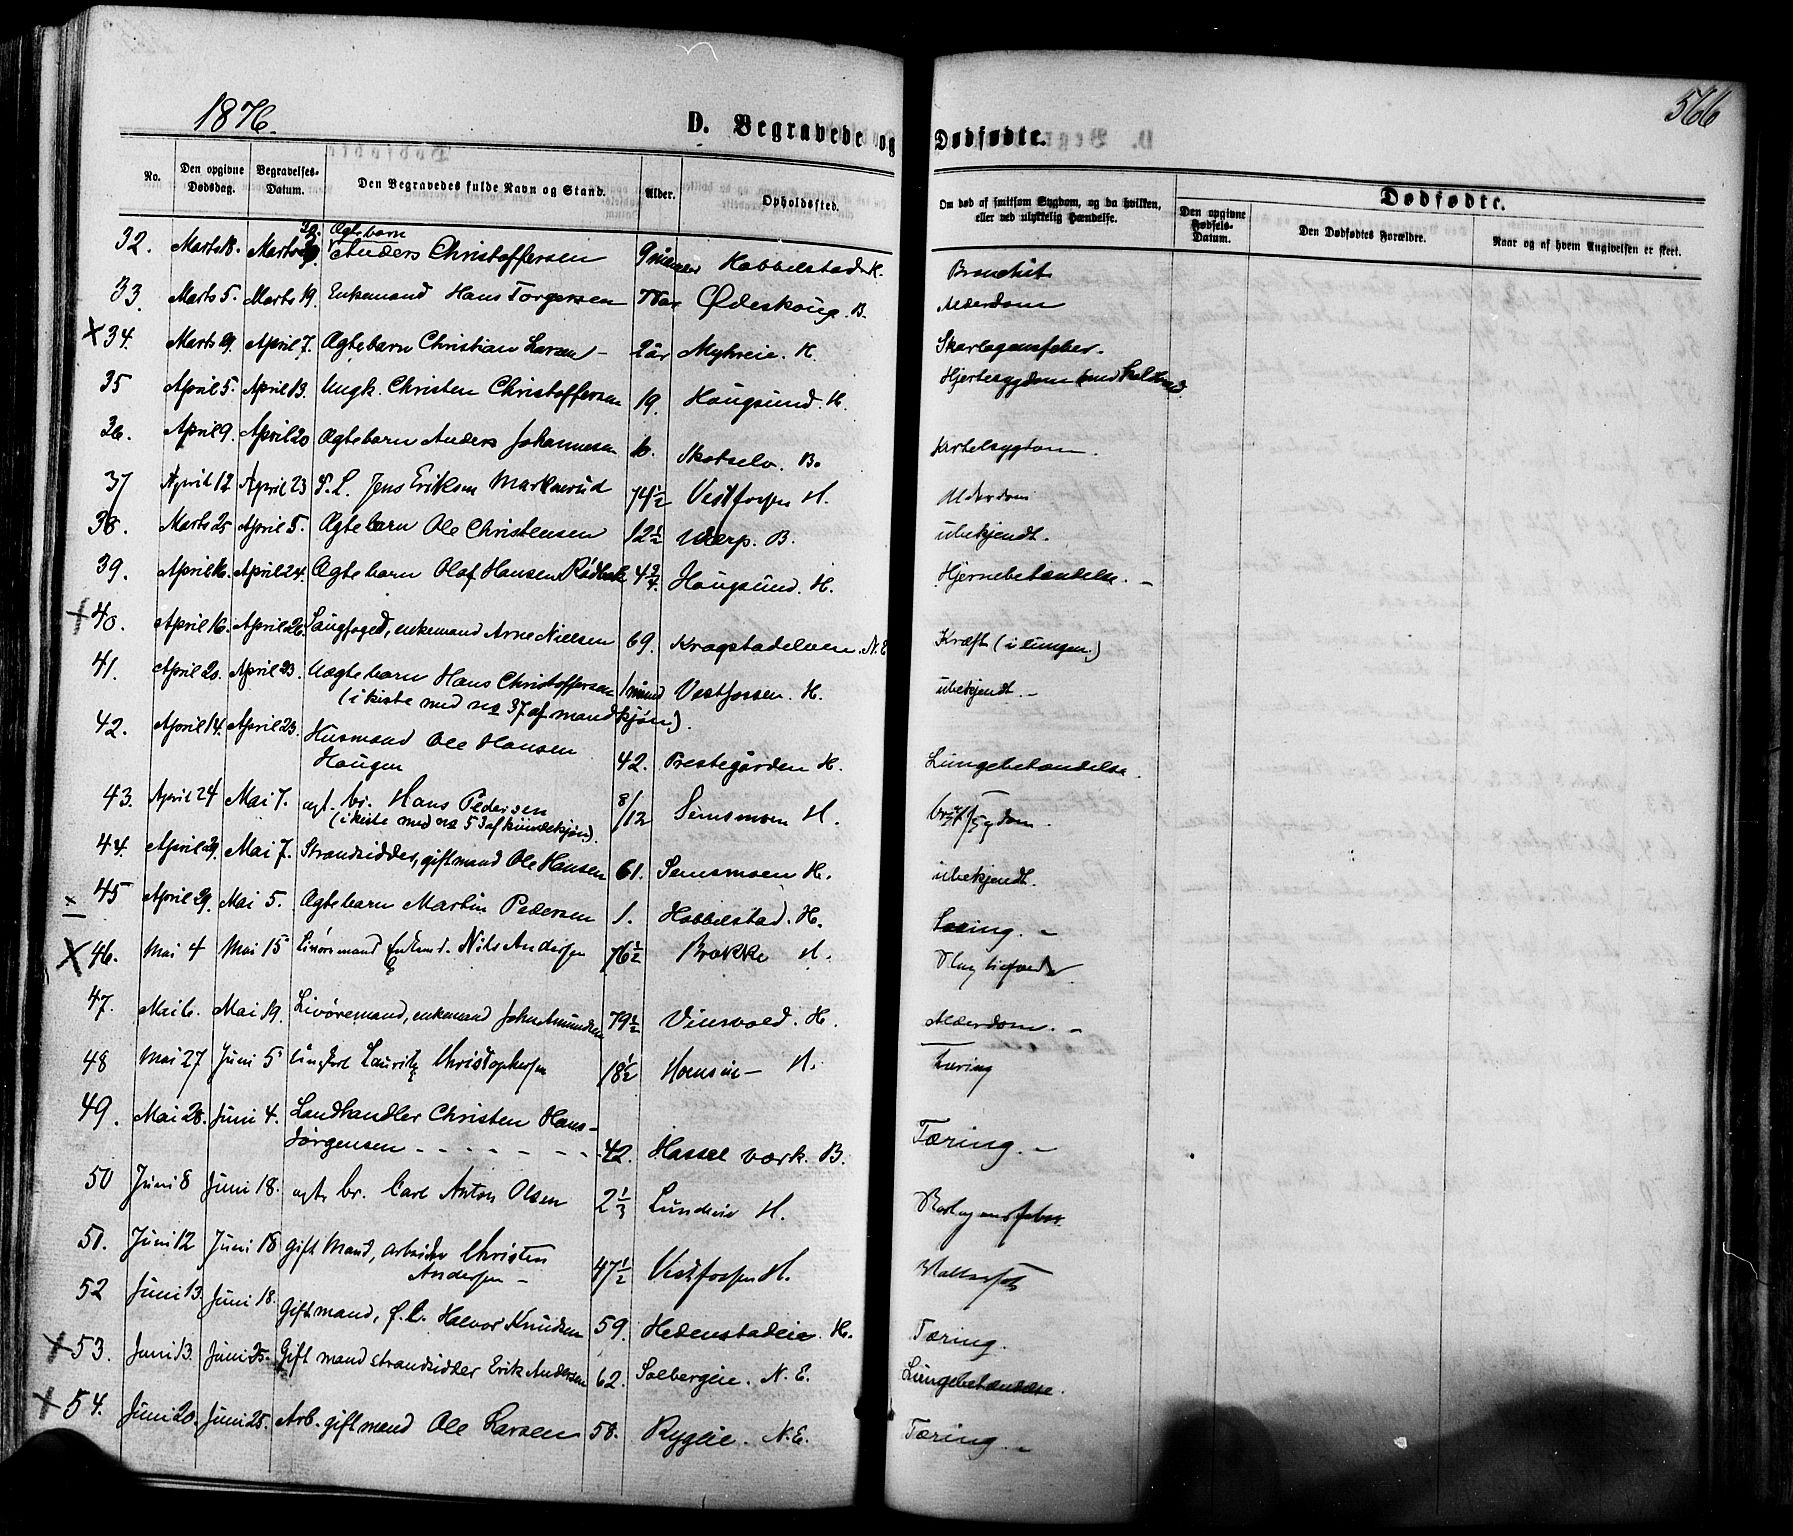 1876.
D. Begravede og Dødfødte.
566
No.
Den opgivne Dødsdag.
Begravelses-Datum.
Den Begravedes fulde Navn og Stand.
Alder.
Opholdssted.
Om død af smitsom Sygdom, og da hvilken, eller ved ulykkelig Hændelse.
Dødfødte.
Den opgivne Fødsels-Datum.
Den Dødfødtes Forældre.
Naar og af hvem Angivelsen er skeet.
32. Marts 18. Marts Ægtebarn Anders Christoffersen Habbelstad H. Bronchit
33. Marts 5. Marts 19. Enkemand Hans Torgersen Ødeskoug. B. Alderdom
x 34. Marts 19. April 7. Ægtebarn Christian Larsen - 2 år Myhreie. H. Skarlagensfeber.
35 April 5. April 13. Ungk. Christen Christoffersen 19. Hougsund. H. Hjertesygdom
36. April 9. April 20 Ægtebarn Anders Johannesen Skotselv. B. Kirtelsygdom.
37 April 12 April 23 F. L. Jens Eriksen Markerud 74½ Vestfossen H. Alderdom
38. Marts 25 April 5. Ægtebarn Ole Christensen 12½ B. ubekjendt.
39. April 16. April 24. Ægtebarn Olaf Hansen 4¾ Hougsund. H. Hjernebetændelse. -
x 40. April 16. April 26. Laugfoged, enkemand Arne Nielsen 69. Kragstadelven. N.E. Kræft (i lungen)
41. April 20. April 23. Uægtebarn Hans Christoffersen 1 mnd Vestfossen. H. ubekjendt. -
(i kiste med no 37 af mandkjøn).
42. April 14. April 23. Husmand Ole Hansen
Haugen 42. Prestegården H. Lungebetændelse.
43. April 24 Mai 7. ægt. br. Hans Pedersen 8/12 Semsmoen H. Brystsygdom.
(i kiste med no 53 af kvindekjøn).
44. April 29. Mai 7. Strandsidder, gift mand Ole Hansen 61. Semsmoen H. ubekjendt.
x 45 April 29. Mai 5. Ægtebarn Martin Pedersen 1. Habbelstad. H. Tæring. -
X 46. Mai 4 Mai 15 Livøremand Enkemd. Nils Andersen 76½ Brække H.
47. Mai 6. Mai 19. Livøremand, enkemand John Amundsen 79½ Vinsvold. H. Alderdom. -
48 Mai 27 Juni 5 Ungkarl Lauritz Christophersen 18½ H. Tæring
49. Mai 28. Juni 4. Landhandler Christen Hans-
Jørgensen - - - - - - - 42. Hassel værk. B. Tæring. -
50 Juni 8 Juni 18. ægte br. Carl Anton Olsen 2⅓ Lundeie H. Skarlagensfeber
51. Juni 12 Juni 18 Gift Mand, arbeider Christen
Andersen - 47½ Vestfossen H. Vattersot
52 Juni 13. Juni 18. Gift mand, f. l. Halvor Knudsen 59. Hedenstadeie. H. Tæring.
x 53. Juni 13. Juni 25. Gift mand strandsidder Erik Andersen 62. Solbergeie. N.E. Lungebetændelse.
x 54. Juni 20. Juni 25. Arb. gift mand Ole Larsen 58. Rygeie. N.E. Tæring. -